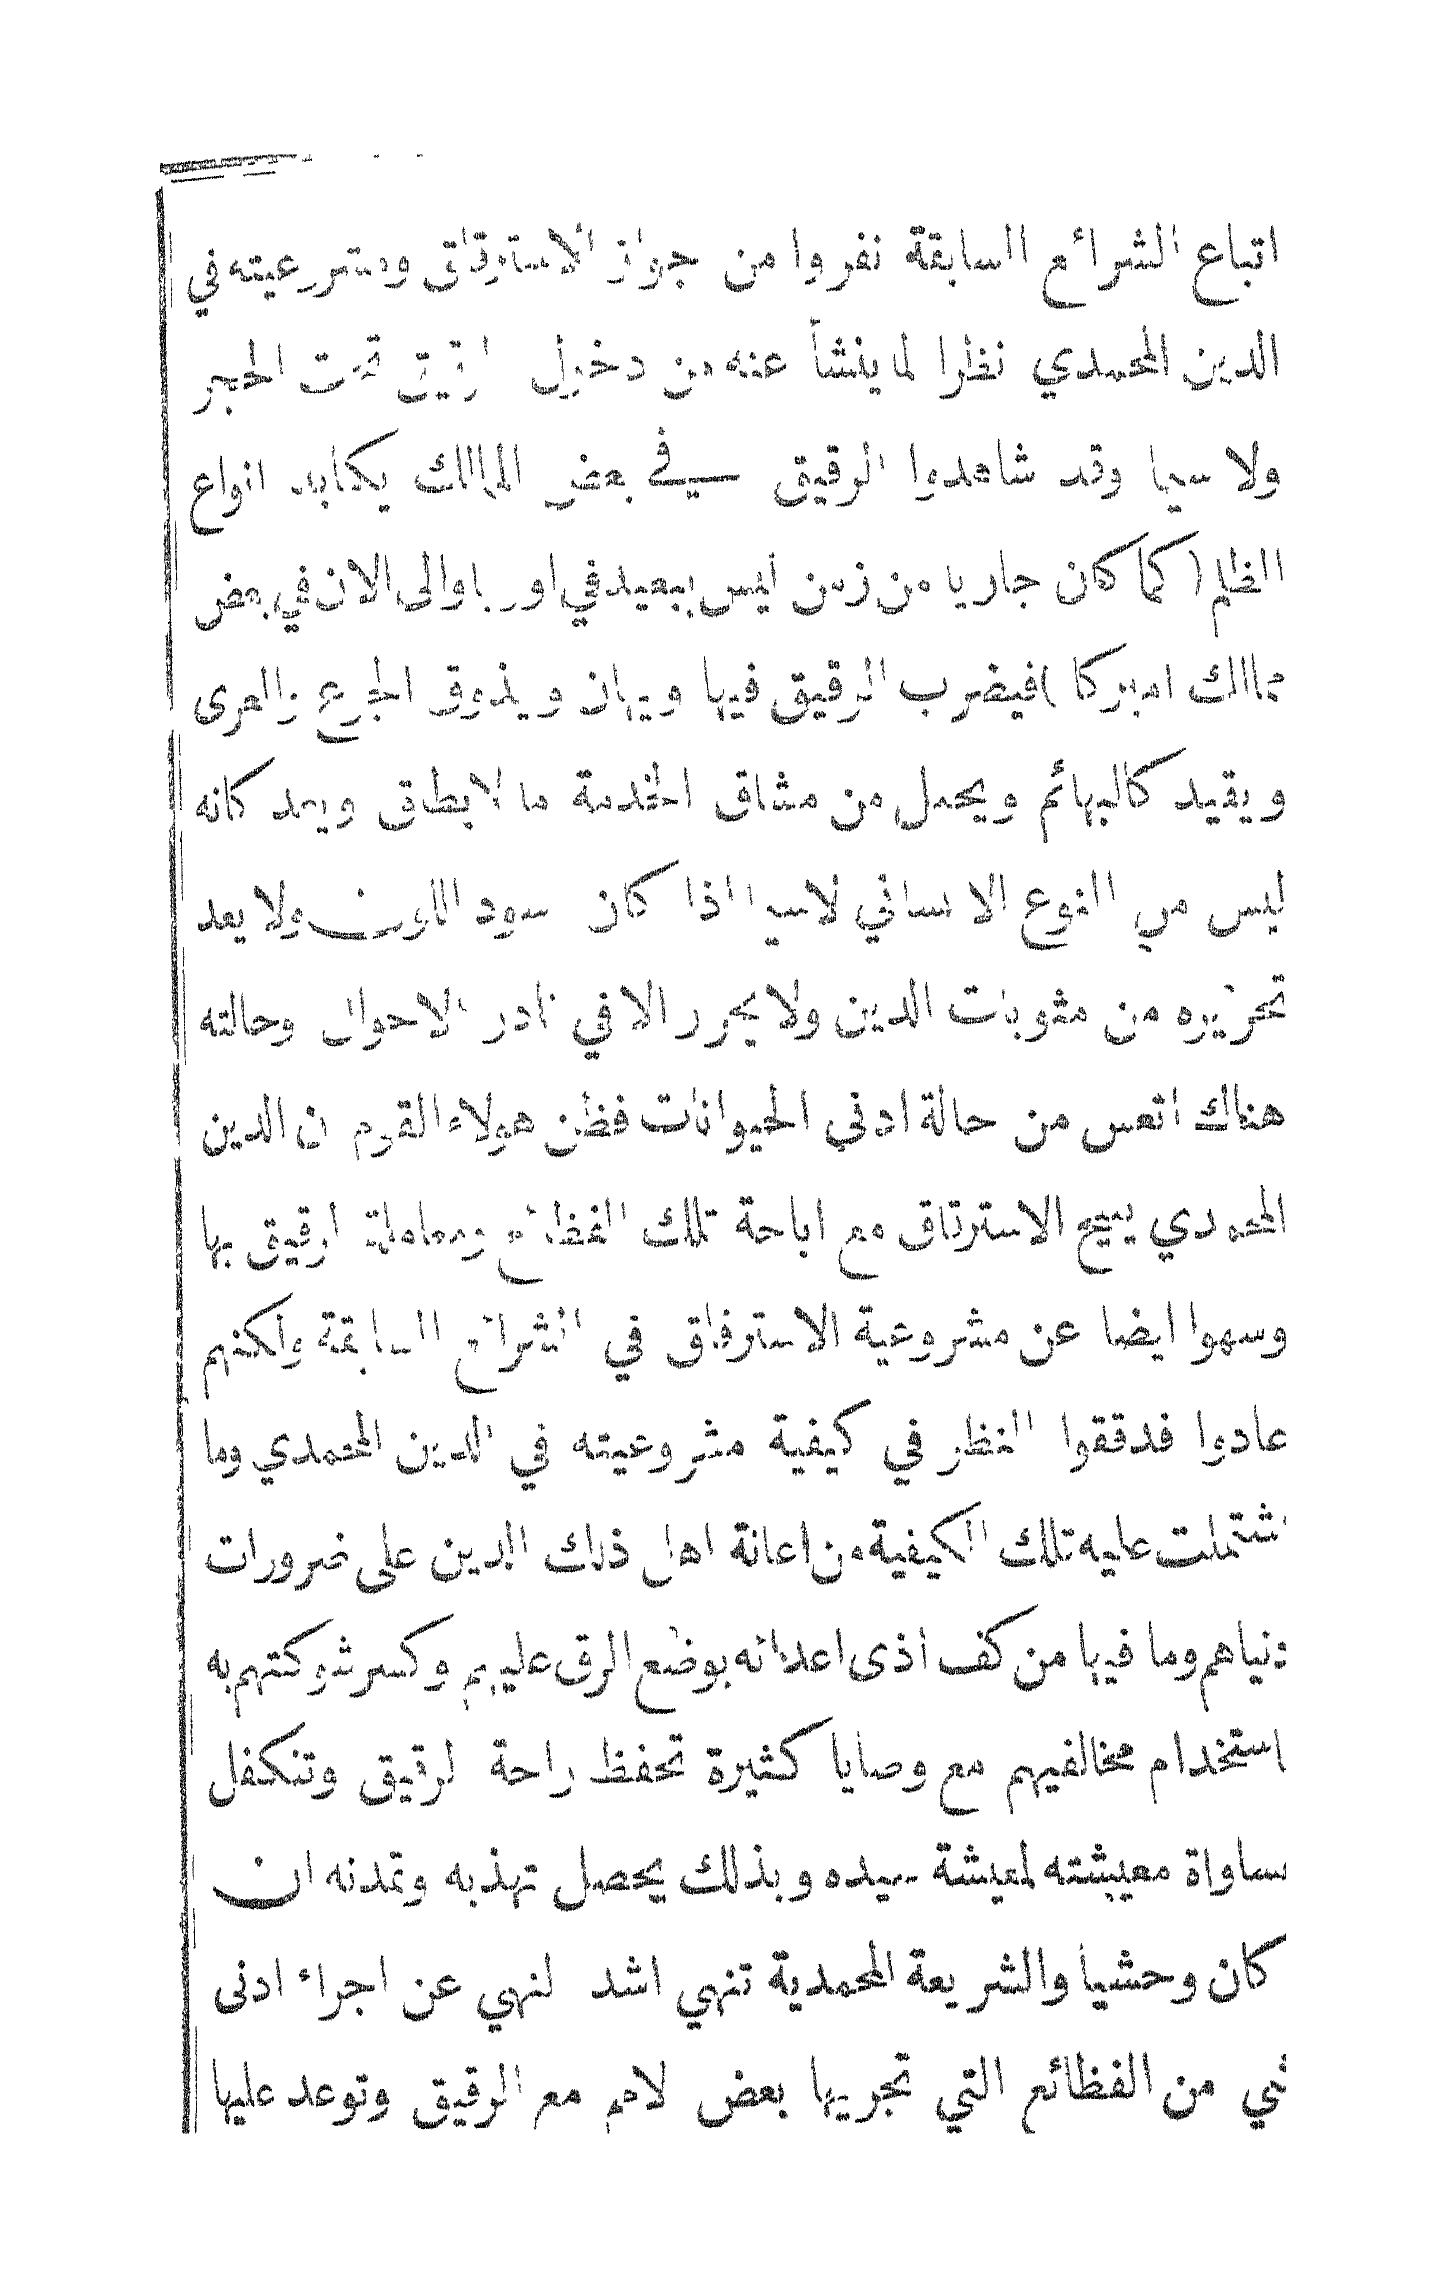 اتباع الشرائع السابقة نفروا من جواز الاسترقاق ومشروعيته في
الدين المحمدي نظرا لما ينشأ عنه من دخول الرقيق تحت الحجر
ولا سيما وقد شاهدوا الرقيق في بعض الممالك يكابد انواع
الظلم (كما كان جاريا من زمن ليس ببعيد في اوربا والى الان في بعض
ممالك اميركا) فيضرب الرقيق فيها ويهان ويذوق الجوع والعرى
ويقيد كالبهائم ويحمل من مشاق الخدمة ما لا يطاق ويعد كانه
ليس من النوع الانساني لاسيما اذا كان اسود اللون ولا يعد
تحريره من مثوبات الدين ولا يحرر الا في نادر الاحوال وحالته
هناك اتعس من حالة ادنى الحيوانات فظن هولاء القوم ان الدين
المحمدي يبيح الاسترقاق مع اباحة تلك الفظائع ومعاملة الرقيق بها
وسهوا ايضا عن مشروعية الاسترقاق في الشرائع السابقة ولكنهم
عادوا فدققوا النظر في كيفية مشروعيته في الدين المحمدي وما
اشتملت عليه تلك الكيفية من اعانة اهل ذلك الدين على ضرورات
دنياهم وما فيها من كف اذى اعدائه بوضع الرق عليهم وكسر شوكتهم به
استخدام مخالفيهم مع وصايا كثيرة تحفظ راحة الرقيق وتتكفل
مساواة معيشته لمعيشة سيده وبذلك يحصل تهذبه وتمدنه ان
كان وحشيا والشريعة المحمدية تنهي اشد النهي عن اجراء ادنى
شي من الفظائع التي تجريها بعض الامم مع الرقيق وتوعد عليها